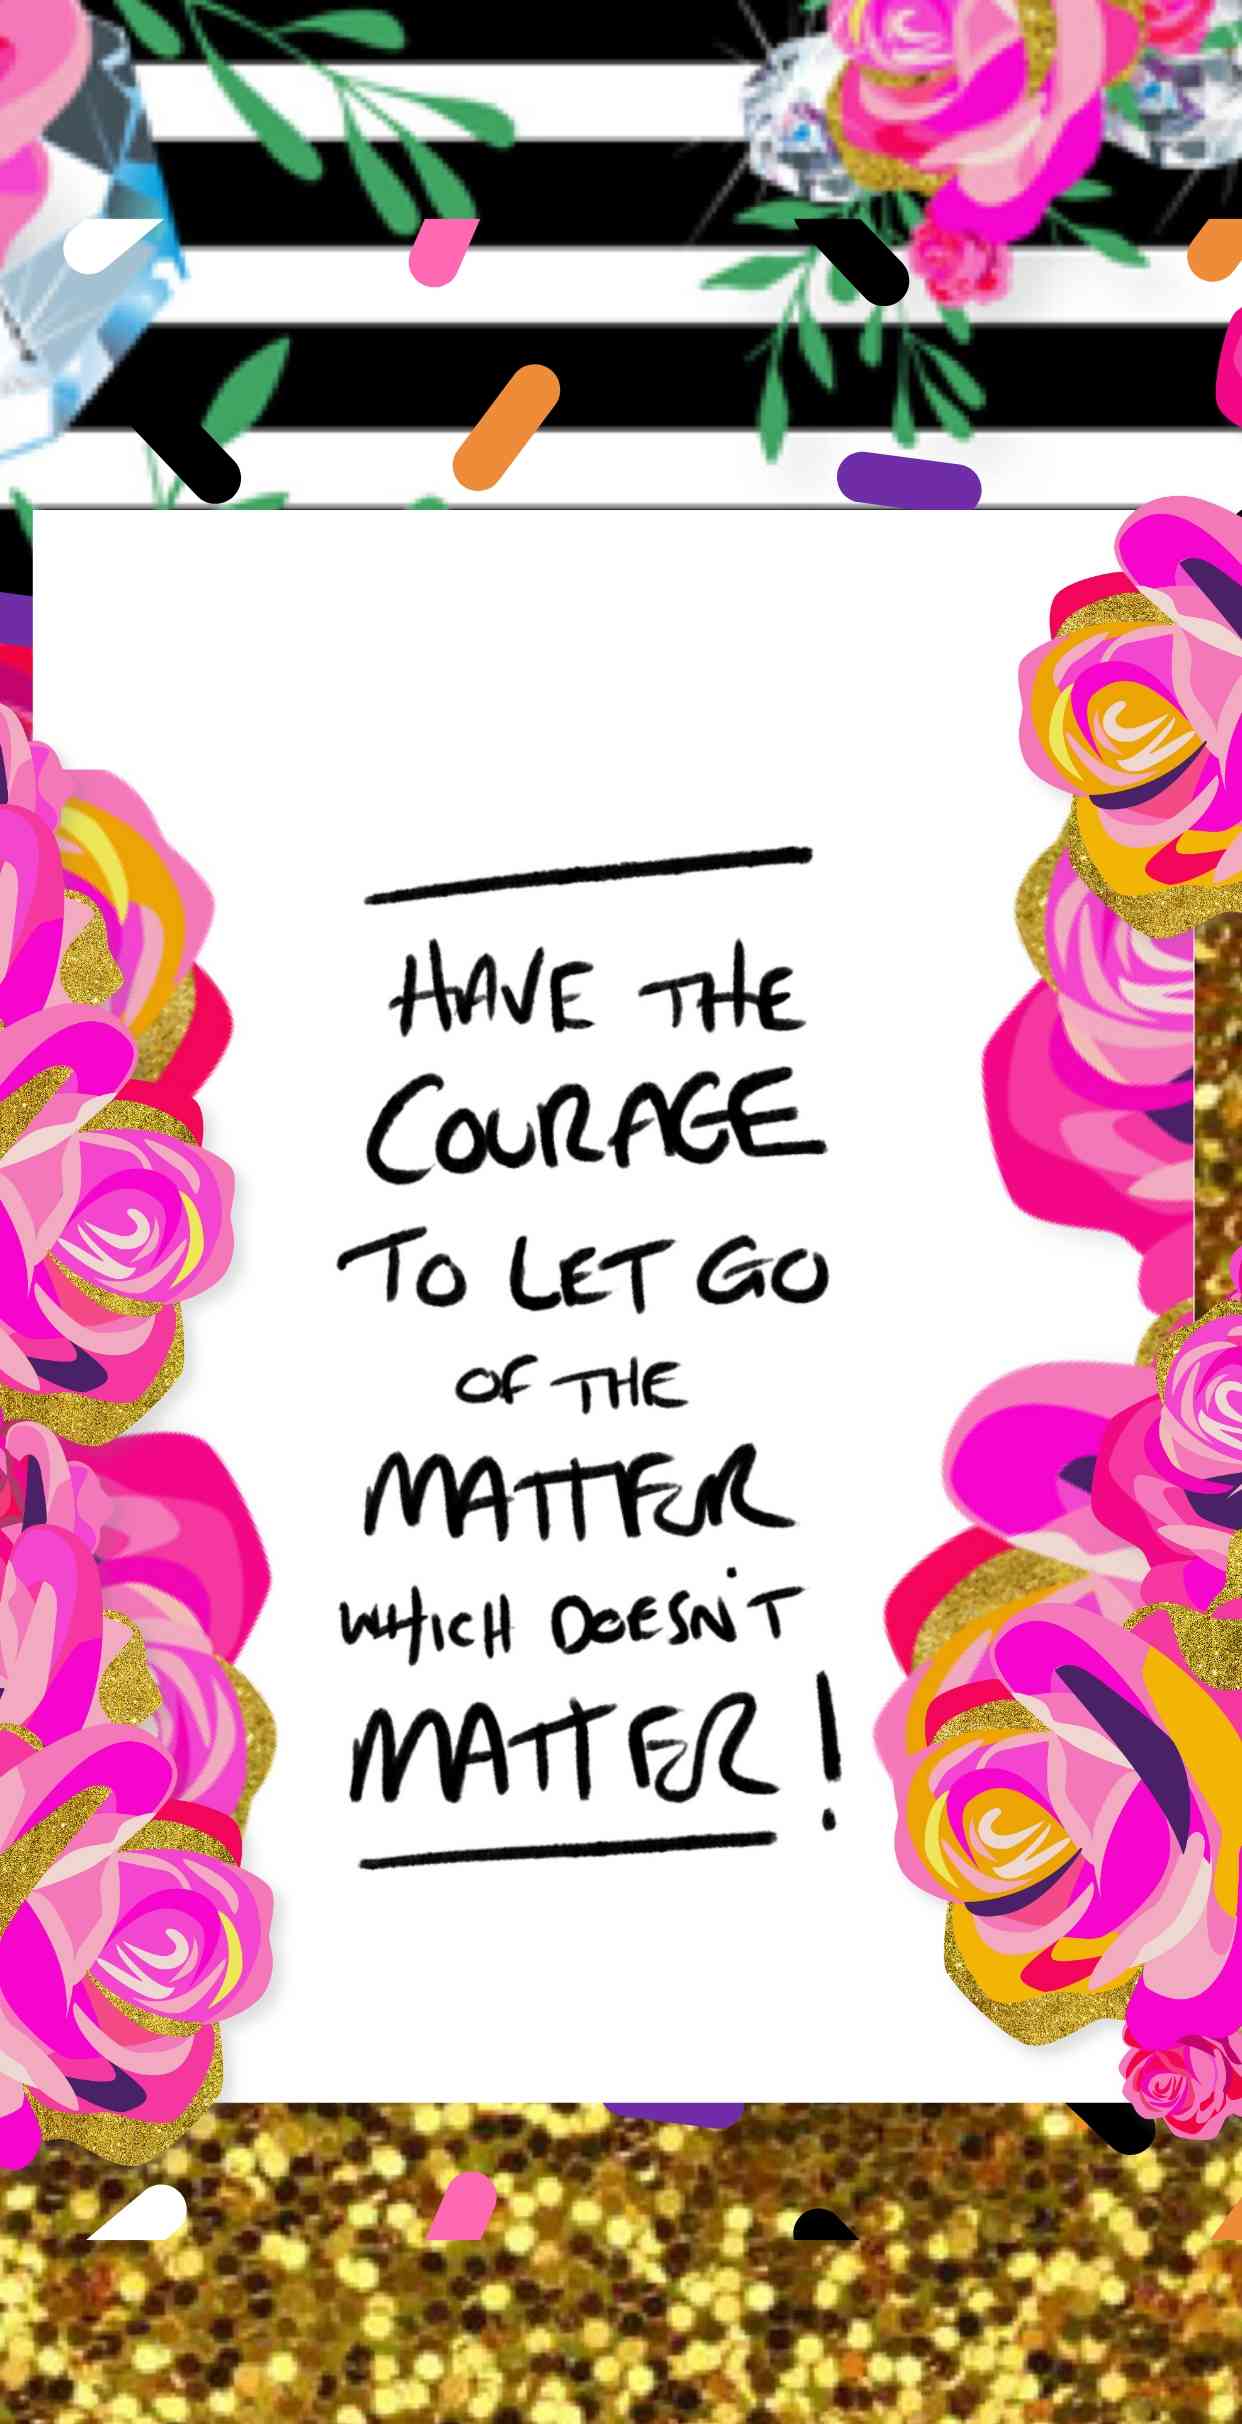 HAVE THE
COURAGE
TO LET GO
OF THE
MATTER
WHICH DOESN'T
MATTER!